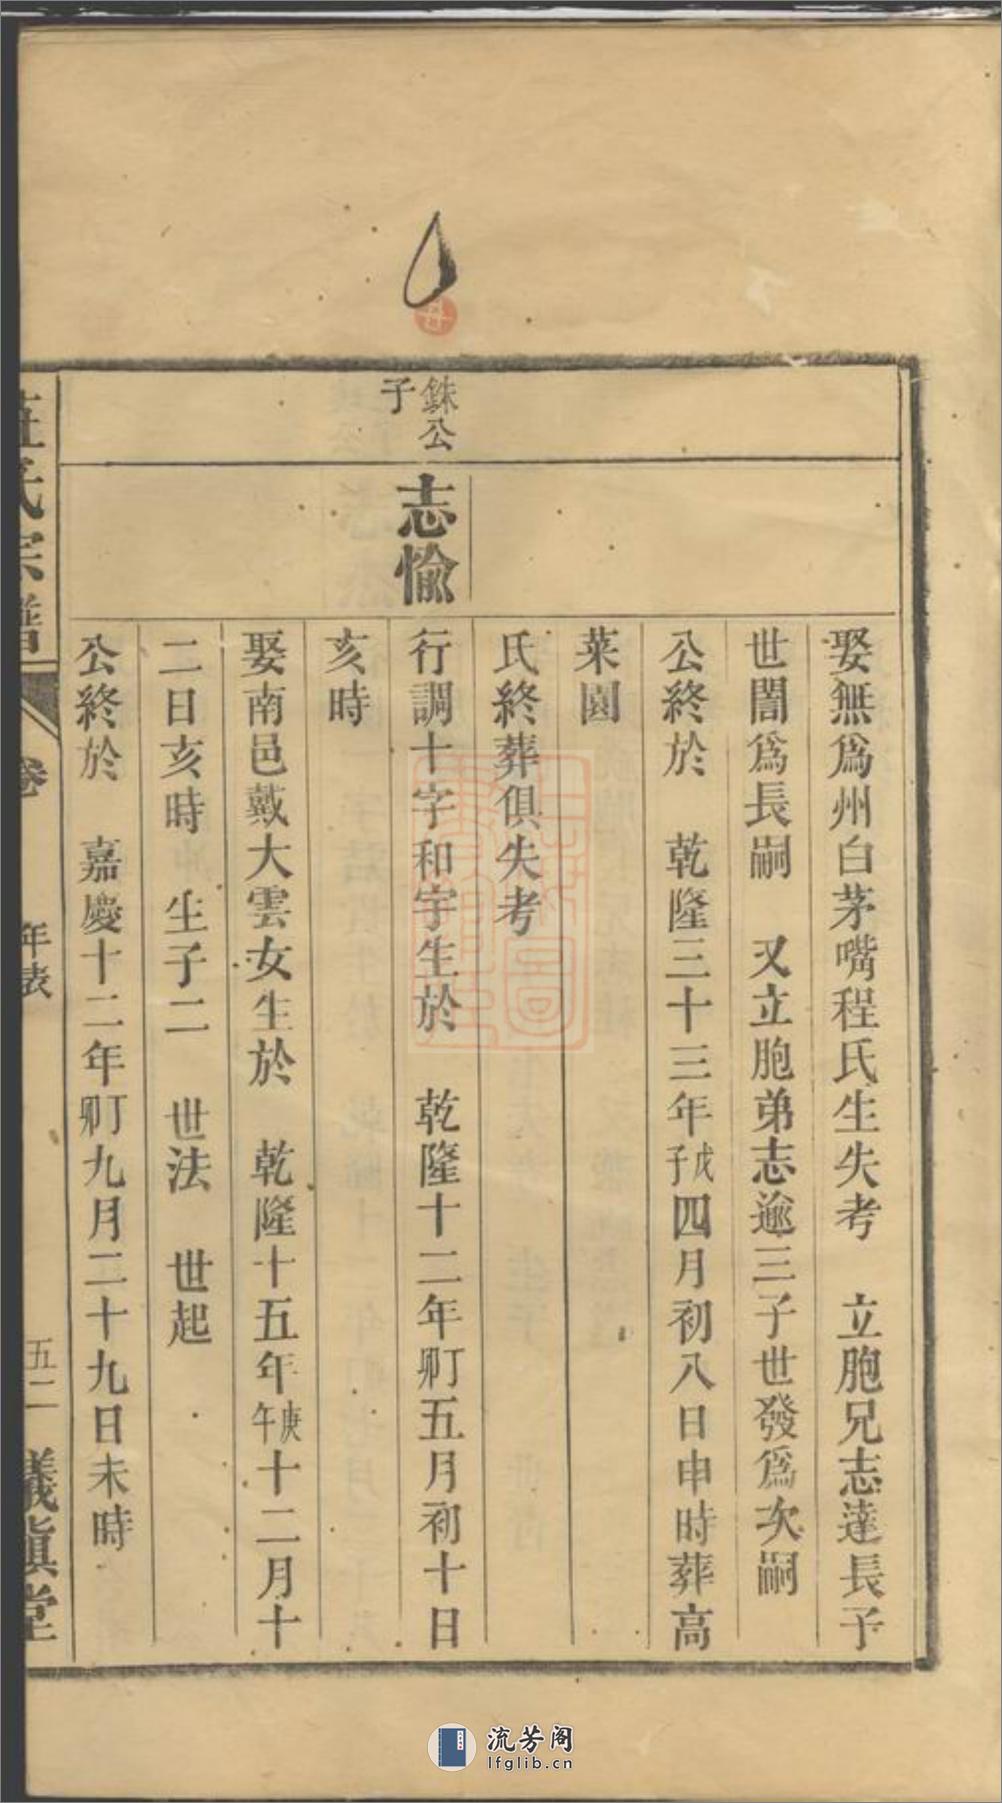 娶無爲州白茅嘴程氏生失考　立胞兄志達長子
世誾爲長嗣　又立胞弟志逾三子世發爲次嗣
公終於　乾隆三十三年戊子四月初八日申時葬高
菜園
氏終葬俱失考
銖公子
志愉
行調十字和宇生於　乾隆十二年丁卯五月初十日
亥時
娶南邑戴大雲女生於　乾隆十五年庚午十二月十
二日亥時　生子二　世法　世起
公終於　嘉慶十二年丁卯九月二十九日未時
氏宗譜　卷　年表　五二　儀眞堂
流芳阁
lfglib.cn